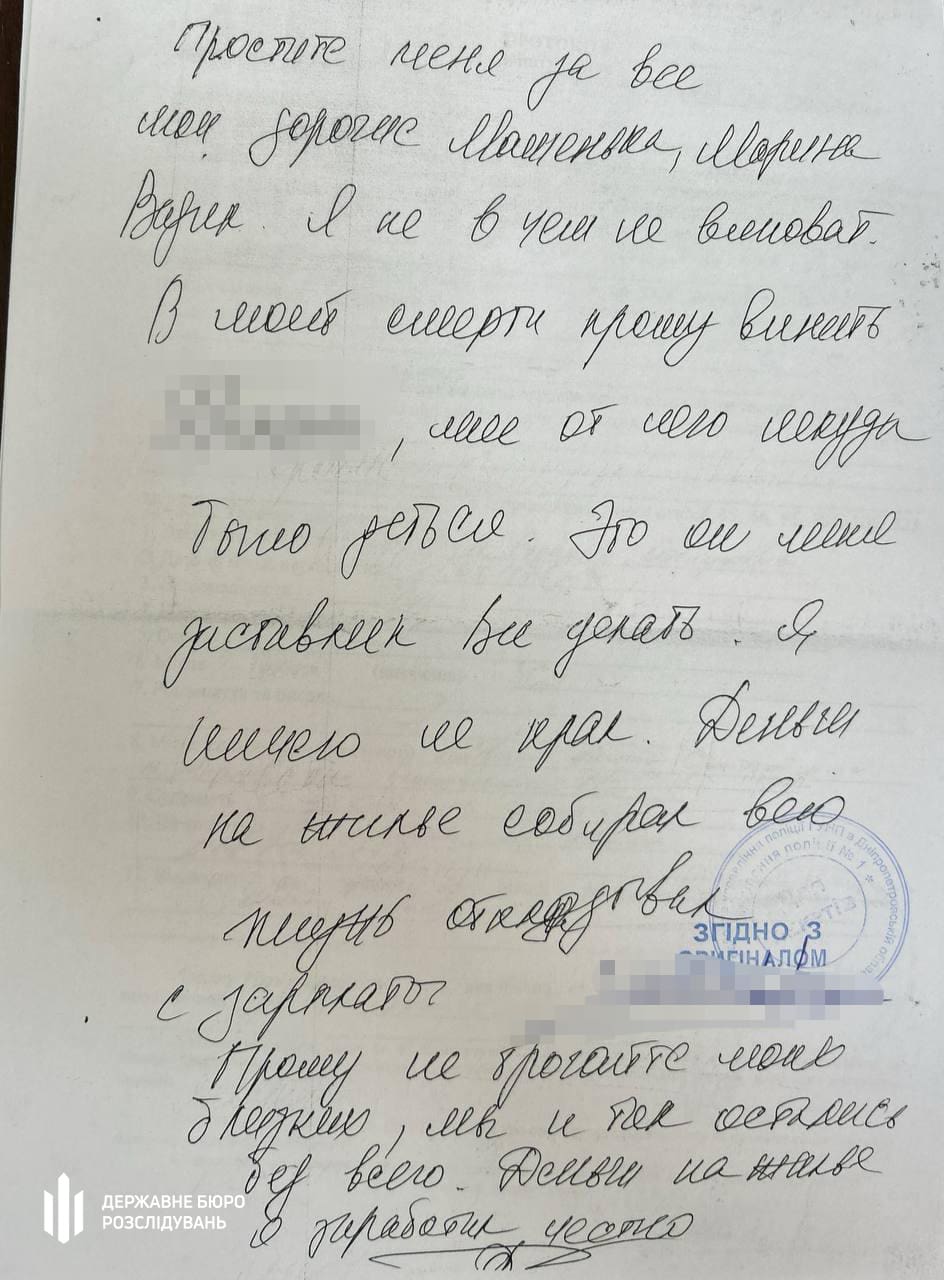 Простите меня за все
мои дорогие Машенька, Марина
Вадик. Я не в чем не виноват.
В моей смерти прошу винить
, мне от него некуда
было деться. Это он меня
заставлял все делать. Я
ничего не крал. Деньги
на жилье собирал всю
жизнь откладывал
с зарплаты
Прошу не трогайте моих
близких, мы и так остались
без всего. Деньги на жилье
я заработал честно
ЗГІДНО З
ОРИГІНАЛОМ
ДЕРЖАВНЕ БЮРО
РОЗСЛІДУВАНЬ